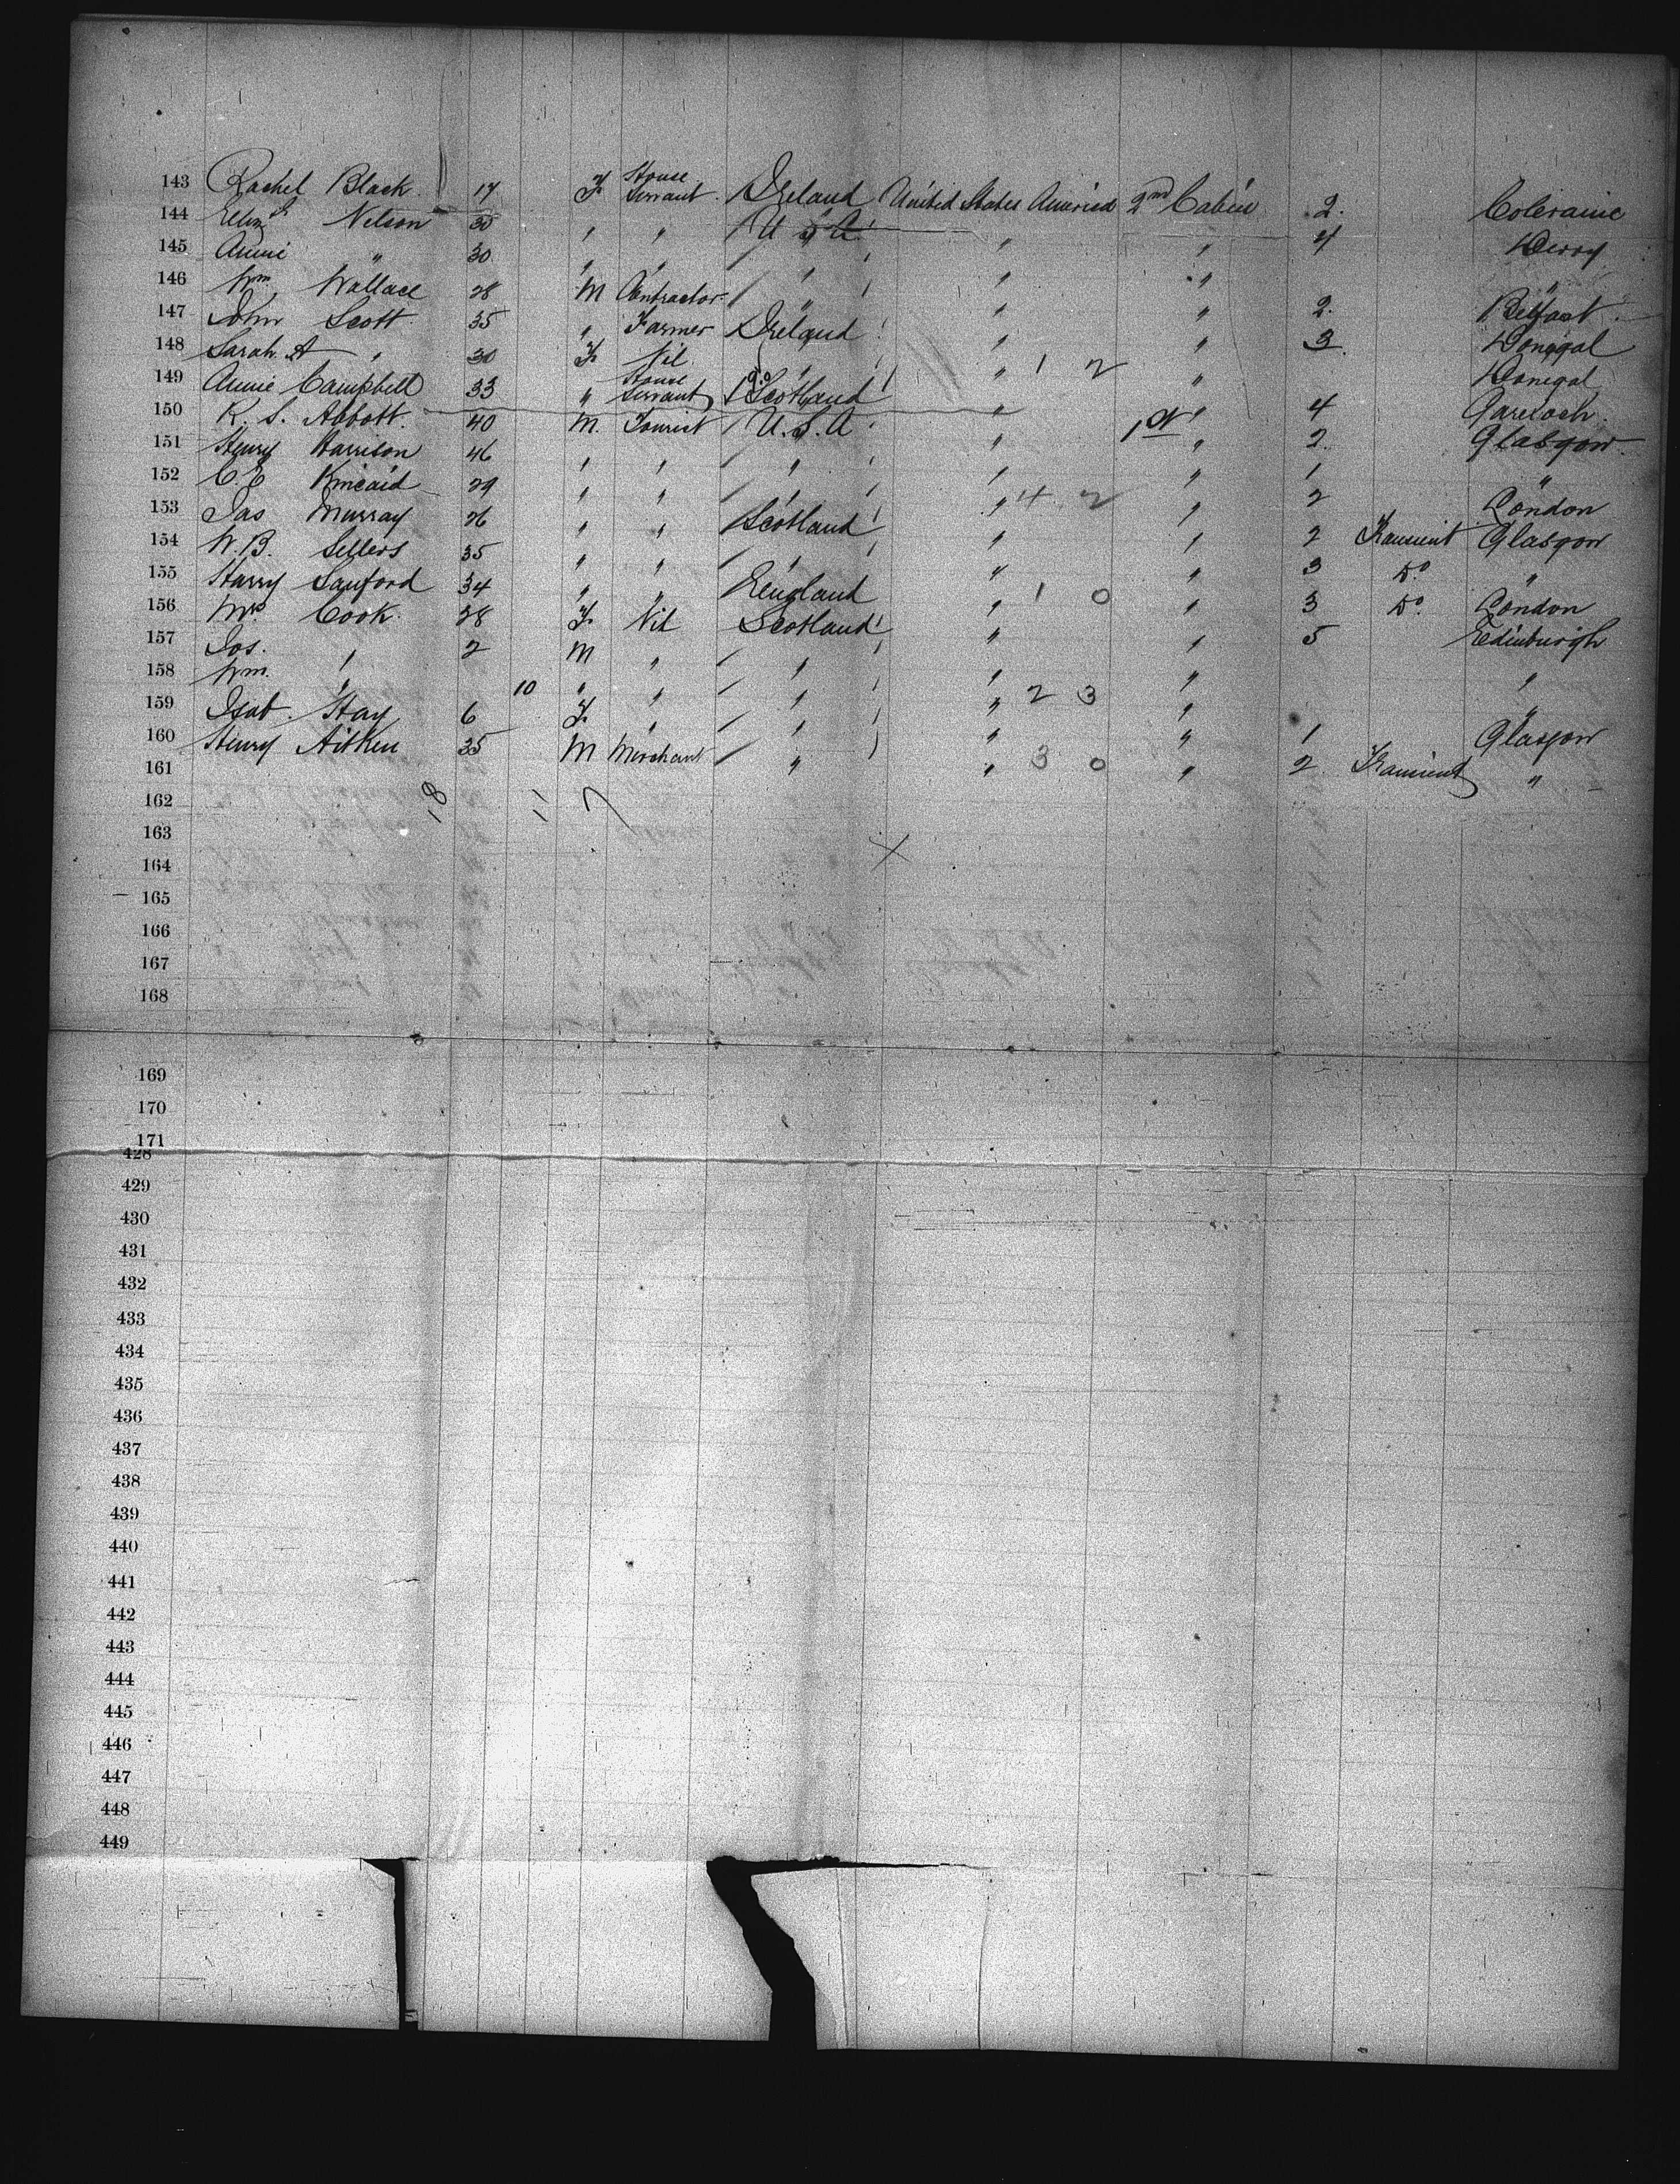 143 Rachel Black 17 F House Servant Ireland United States America 2nd Cabin 2. Coleraine
144 Eliz Nelson 30 " " U S A " " 4 Derry
145 Annie " 30 " " " " " "
146 Wm Wallace 28 M Contractor " " " 2. Belfast
147 John Scott 35 " Farmer Ireland " " 3. Donegal
148 Sarah A " 30 F Nil " " 1 2 " Donegal
149 Annie Campbell 33 " House Servant Scotland " " 4 Gareloch
150 R. S. Abbott. 40 M. Tourist U.S.A " 1st " 2. Glasgow
151 Henry Harrison 46 " " " " " 1 "
152 C E Kincaid 29 " " " " 4 2 " 2 London
153 Jas Murray 26 " " Scotland " " 2 Transient Glasgow
154 W. B. Sellers 35 " " " " " 3 Do "
155 Harry Sanford 34 " " England " 1 0 " 3 Do. London
156 Mrs Cook. 28 F Nil Scotland " " 5 Edinburgh
157 Jos. " 2 M " " " "
158 Wm. " 10 " " " " 2 3 " "
159 Isab. Hay 6 F " " " " 1 Glasgow
160 Henry Aitken 35 M Merchant " " 3 0 " 2 Transient "
161
162 18 11 7
163
164
165
166
167
168
169
170
171
428
429
430
431
432
433
434
435
436
437
438
439
440
441
442
443
444
445
446
447
448
449